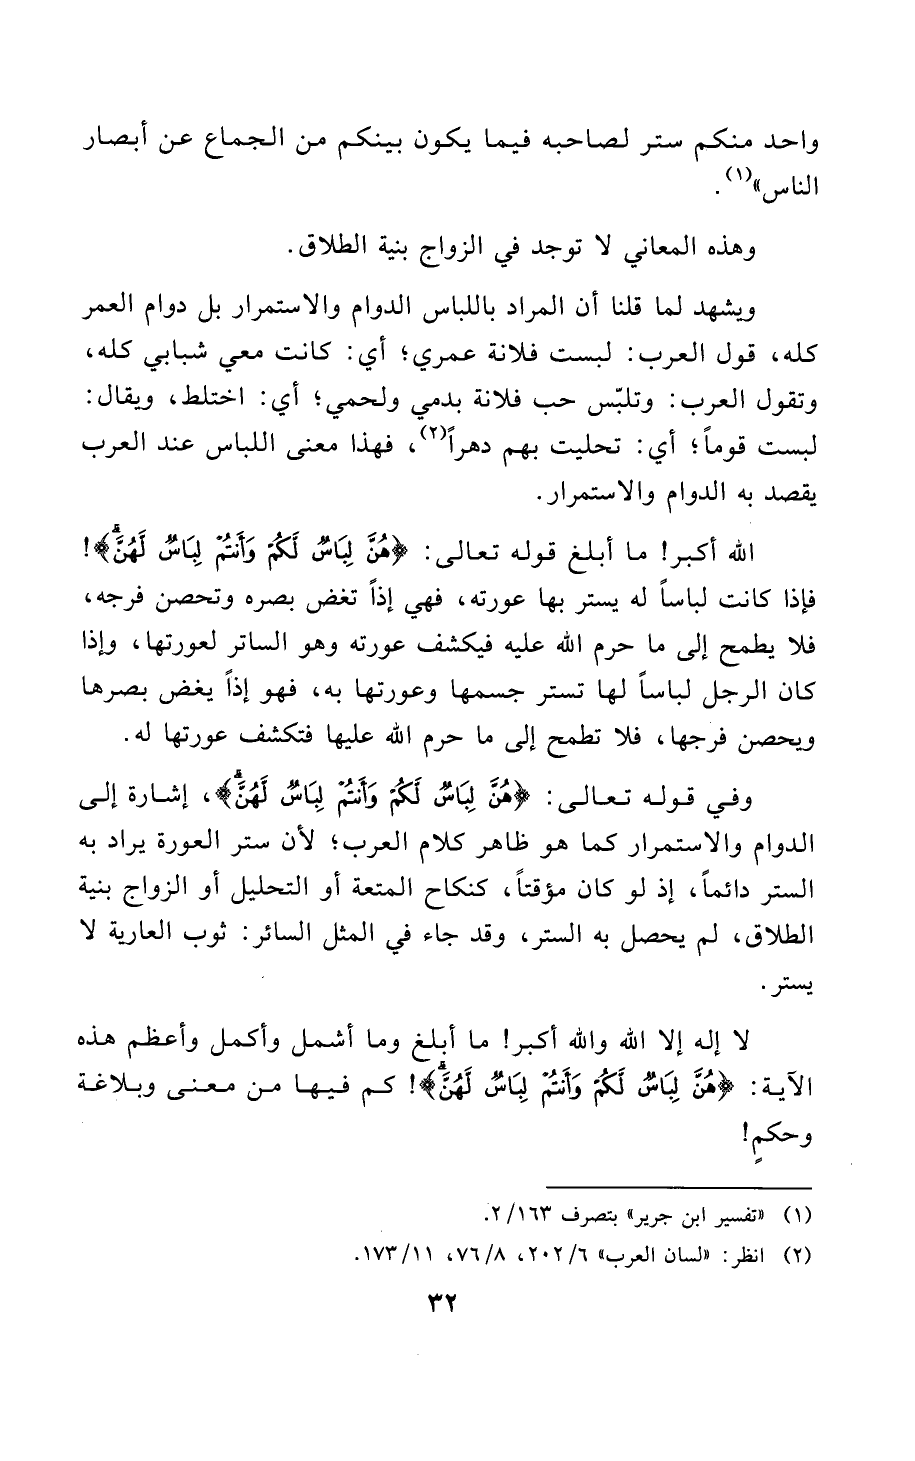 واحد منكم ستر لصاحبه فيما يكون بينكم من الجماع عن أبصار
الناس»(١).
وهذه المعاني لا توجد في الزواج بنية الطلاق.
ويشهد لما قلنا أن المراد باللباس الدوام والاستمرار بل دوام العمر
كله، قول العرب: لبست فلانة عمري؛ أي: كانت معي شبابي كله،
وتقول العرب: وتلبّس حب فلانة بدمي ولحمي؛ أي: اختلط، ويقال:
لبست قوماً؛ أي: تحليت بهم دهراً(٢)، فهذا معنى اللباس عند العرب
يقصد به الدوام والاستمرار.
الله أكبر! ما أبلغ قوله تعالى: ﴿هُنَّ لِبَاسٌ لَكُمْ وَأَنتُمْ لِبَاسٌ لَهُنَّۗ﴾!
فإذا كانت لباساً له يستر بها عورته، فهي إذاً تغض بصره وتحصن فرجه،
فلا يطمح إلى ما حرم الله عليه فيكشف عورته وهو الساتر لعورتها، وإذا
كان الرجل لباساً لها تستر جسمها وعورتها به، فهو إذاً يغض بصرها
ويحصن فرجها، فلا تطمح إلى ما حرم الله عليها فتكشف عورتها له.
وفي قوله تعالى: ﴿هُنَّ لِبَاسٌ لَكُمْ وَأَنتُمْ لِبَاسٌ لَهُنَّۗ﴾، إشارة إلى
الدوام والاستمرار كما هو ظاهر كلام العرب؛ لأن ستر العورة يراد به
الستر دائماً، إذ لو كان مؤقتاً، كنكاح المتعة أو التحليل أو الزواج بنية
الطلاق، لم يحصل به الستر، وقد جاء في المثل السائر: ثوب العارية لا
يستر.
لا إله إلا الله والله أكبر! ما أبلغ وما أشمل وأكمل وأعظم هذه
الآية: ﴿هُنَّ لِبَاسٌ لَكُمْ وَأَنتُمْ لِبَاسٌ لَهُنَّۗ﴾! كم فيها من معنى وبلاغة
وحكمٍ!
(١) «تفسير ابن جرير» بتصرف ٢/١٦٣.
(٢) انظر: «لسان العرب» ٢٠٢/٦، ٧٦/٨، ١٧٣/١١.
٣٢